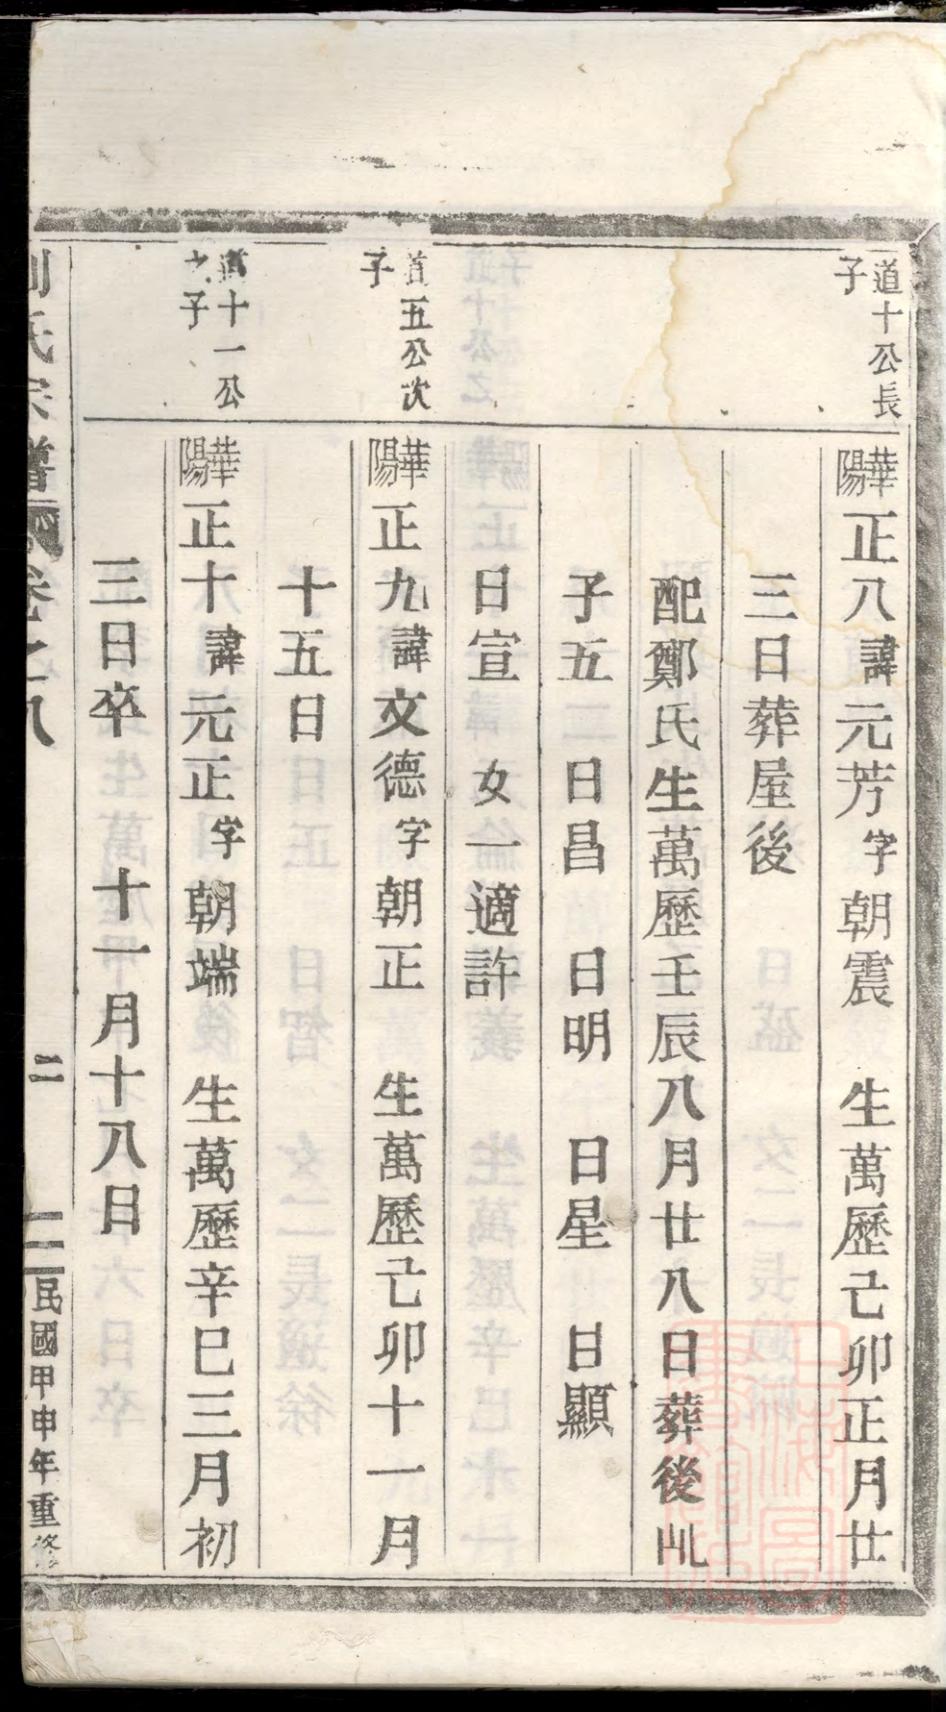 道十公長
子
華陽正八諱元芳字朝震 生萬歷己卯正月廿
三日葬屋後
配鄭氏生萬歷壬辰八月廿八日葬後山
子五 日昌 日明 日星 日顯
日宣 女一適許
道五公次
子
華陽正九諱文德字朝正 生萬歷己卯十一月
十五日
道十一公
之子
華陽正十諱元正字朝端 生萬歷辛巳三月初
三日卒 十一月十八日
氏宗譜 卷之八 二 民國甲申年重修